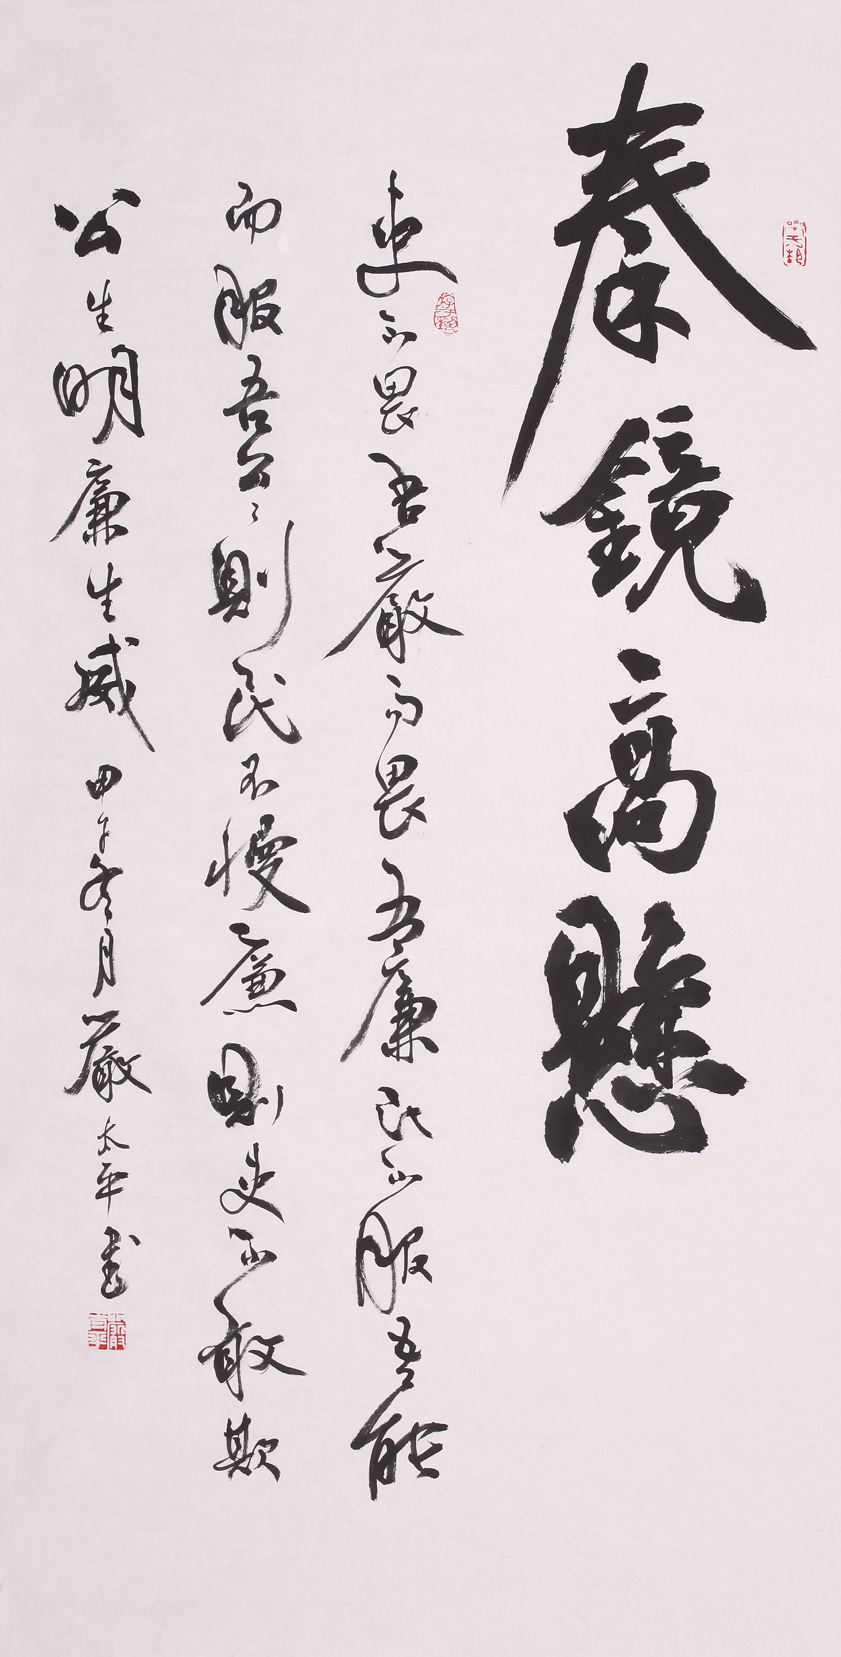 秦鏡高懸
吏不畏吾嚴而畏吾廉民不服吾能
而服吾公〻則民不慢廉則吏不敢欺
公生明廉生威 甲午冬月嚴太平書